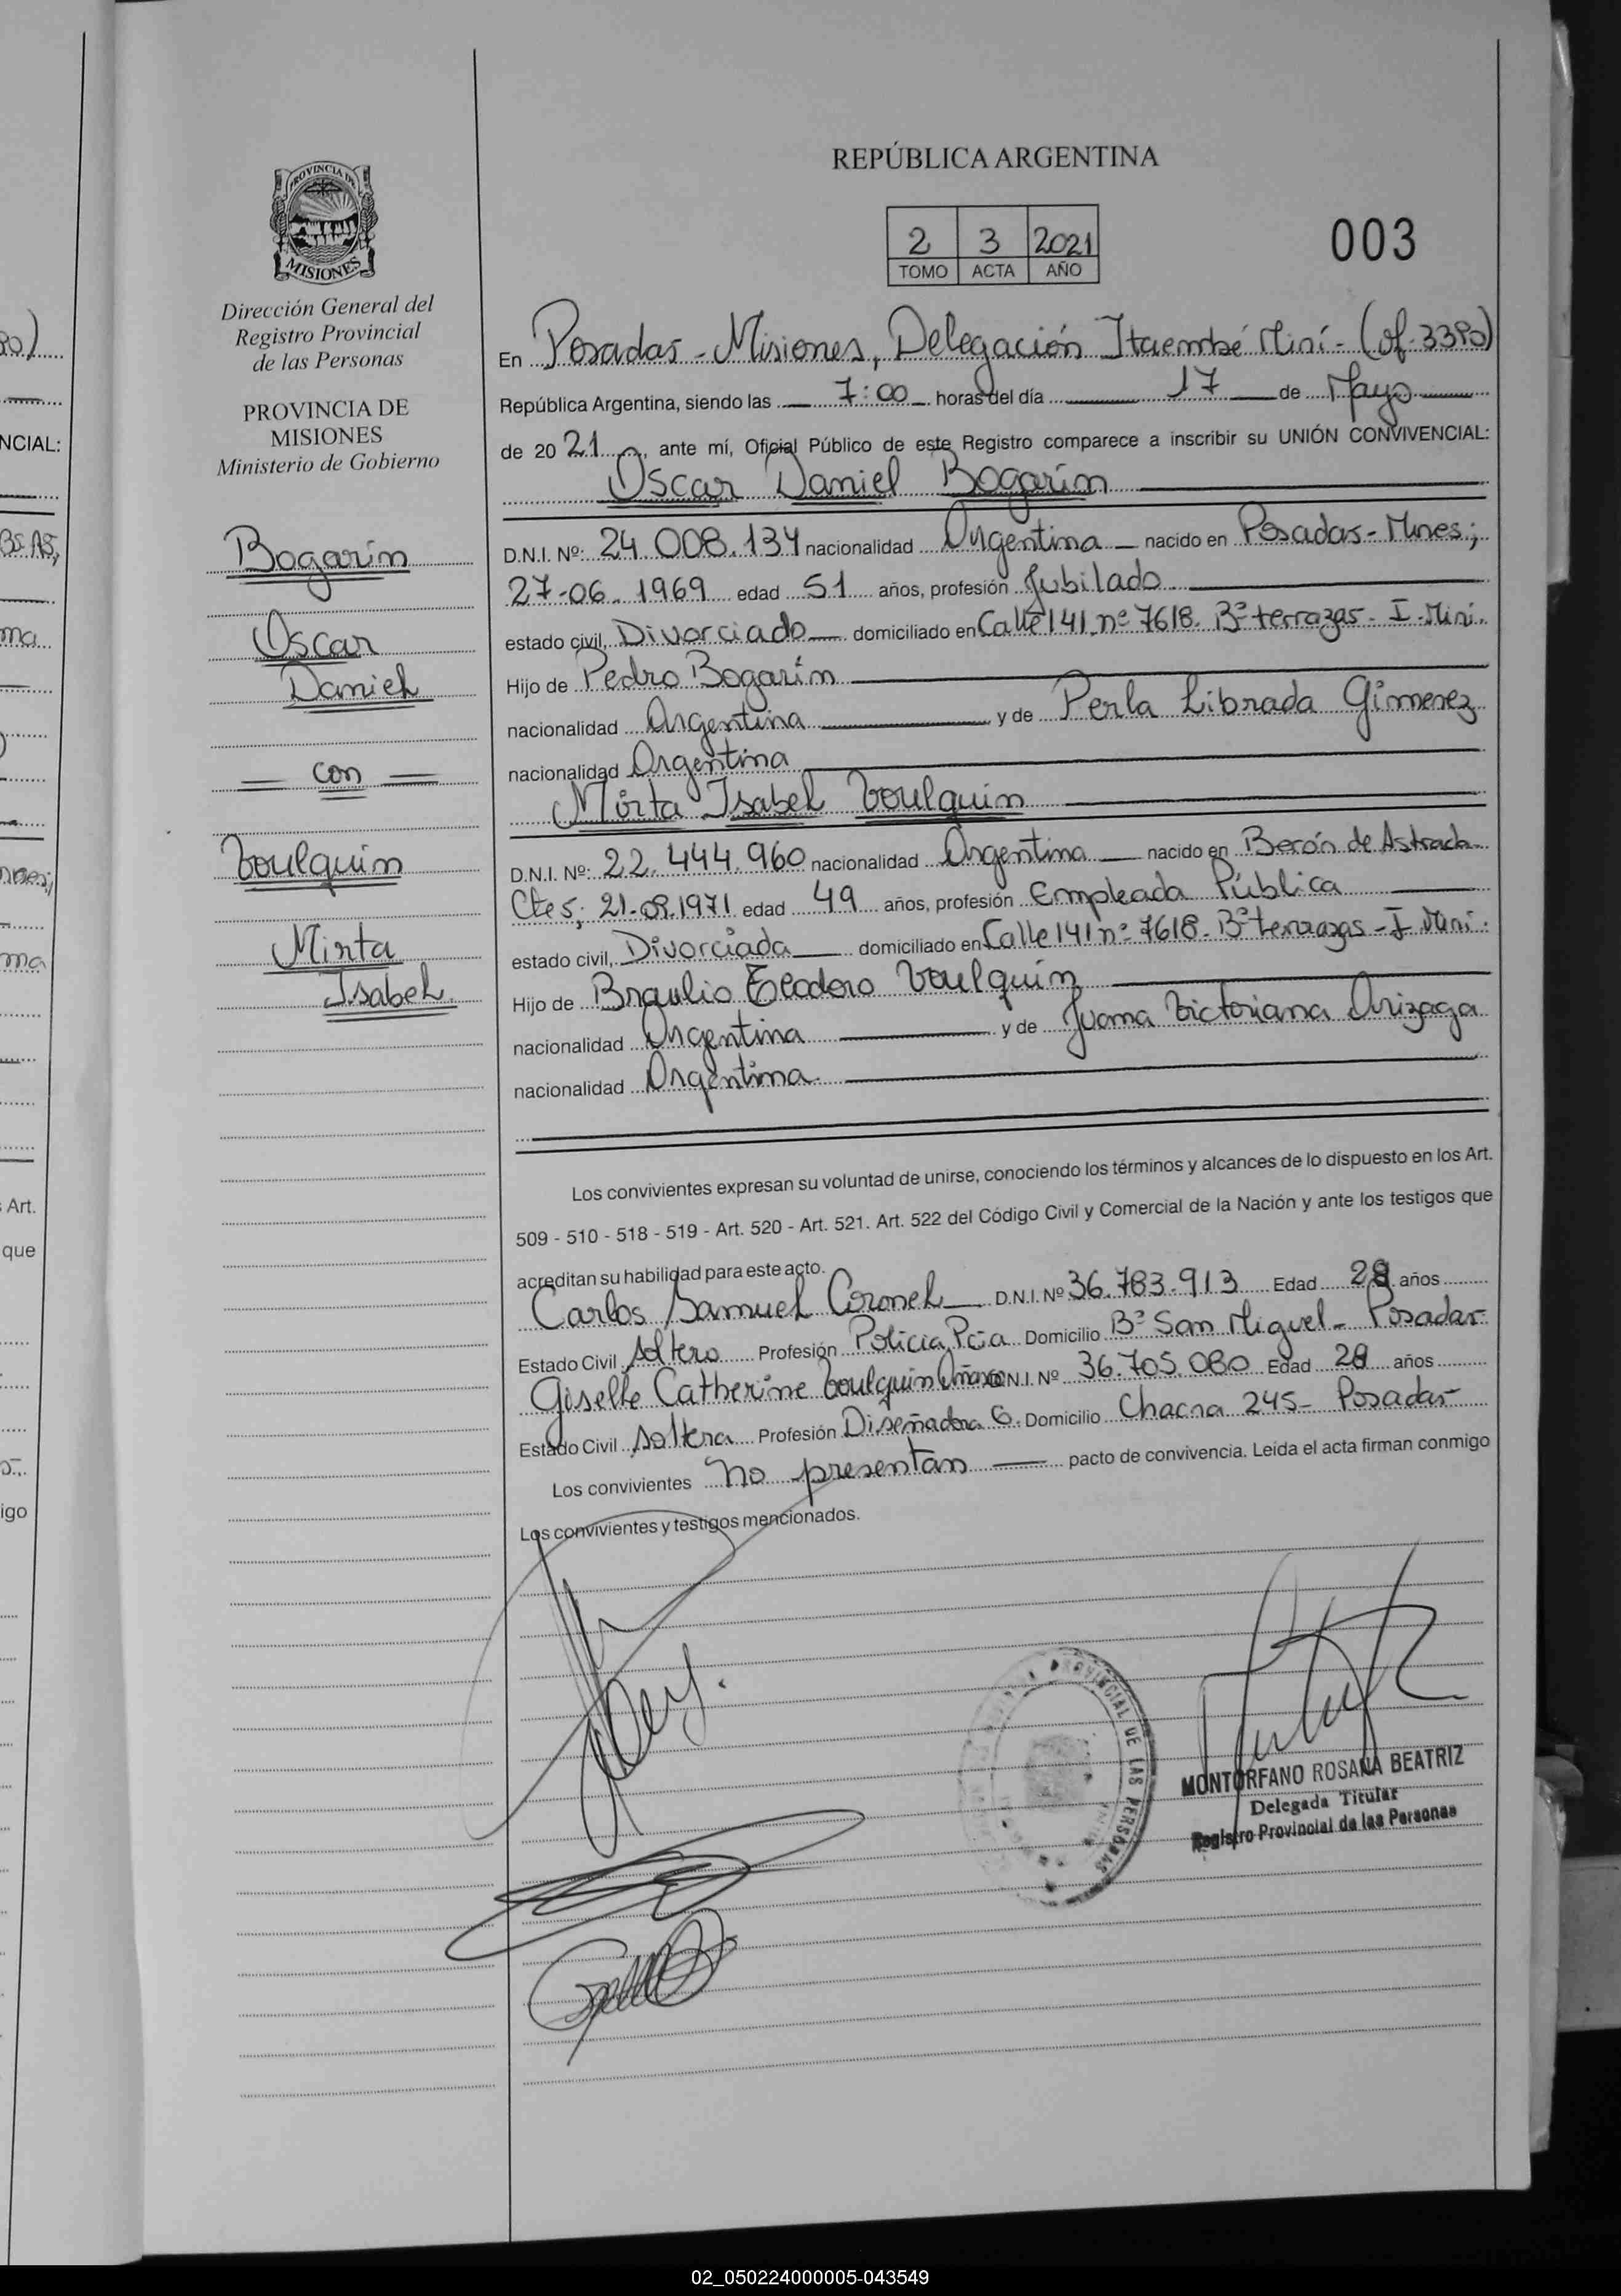 REPÚBLICA ARGENTINA
2 3 2021
TOMO ACTA AÑO
003
PROVINCIA DE
MISIONES
Dirección General del
Registro Provincial
de las Personas
PROVINCIA DE
MISIONES
Ministerio de Gobierno
Bogarín
Oscar
Daniel
con
Voulquin
Mirta
Isabel.
En Posadas - Misiones, Delegación Itaembé Miní - (of. 3390)
República Argentina, siendo las 7:00 horas del día 17 de Mayo
de 2021, ante mí, Oficial Público de este Registro comparece a inscribir su UNIÓN CONVIVENCIAL:
Oscar Daniel Bogarín
D.N.I. Nº: 24.008.134 nacionalidad Argentina nacido en Posadas - Mnes;
27-06-1969 edad 51 años, profesión Jubilado
estado civil, Divorciado domiciliado en Calle 141 nº 7618. Bº terrazas - I. Miní.
Hijo de Pedro Bogarín
nacionalidad Argentina y de Perla Librada Gimenez
nacionalidad Argentina
Mirta Isabel Voulquin
D.N.I. Nº: 22.444.960 nacionalidad Argentina nacido en Berón de Astrada
Ctes; 21-09-1971 edad 49 años, profesión Empleada Pública
estado civil, Divorciada domiciliado en Calle 141 nº 7618 - Bº terrazas - I. Miní.
Hijo de Braulio Teodoro Voulquin
nacionalidad Argentina y de Juana Victoriana Arizaga
nacionalidad Argentina.
Los convivientes expresan su voluntad de unirse, conociendo los términos y alcances de lo dispuesto en los Art.
509 - 510 - 518 - 519 - Art. 520 - Art. 521. Art. 522 del Código Civil y Comercial de la Nación y ante los testigos que
acreditan su habilidad para este acto.
Carlos Samuel Coronel D.N.I. Nº 36.783.913 Edad 28 años
Estado Civil Soltero Profesión Policía Pcia Domicilio Bº San Miguel - Posadas
Giselle Catherine Voulquin D.N.I. Nº 36.705.080 Edad 28 años
Estado Civil Soltera Profesión Diseñadora G. Domicilio Chacra 245 - Posadas
Los convivientes no presentan pacto de convivencia. Leída el acta firman conmigo
Los convivientes y testigos mencionados.
PROVINCIAL DE LAS PERSONAS
MONTORFANO ROSANA BEATRIZ
Delegada Titular
Registro Provincial de las Personas
02_050224000005-043549